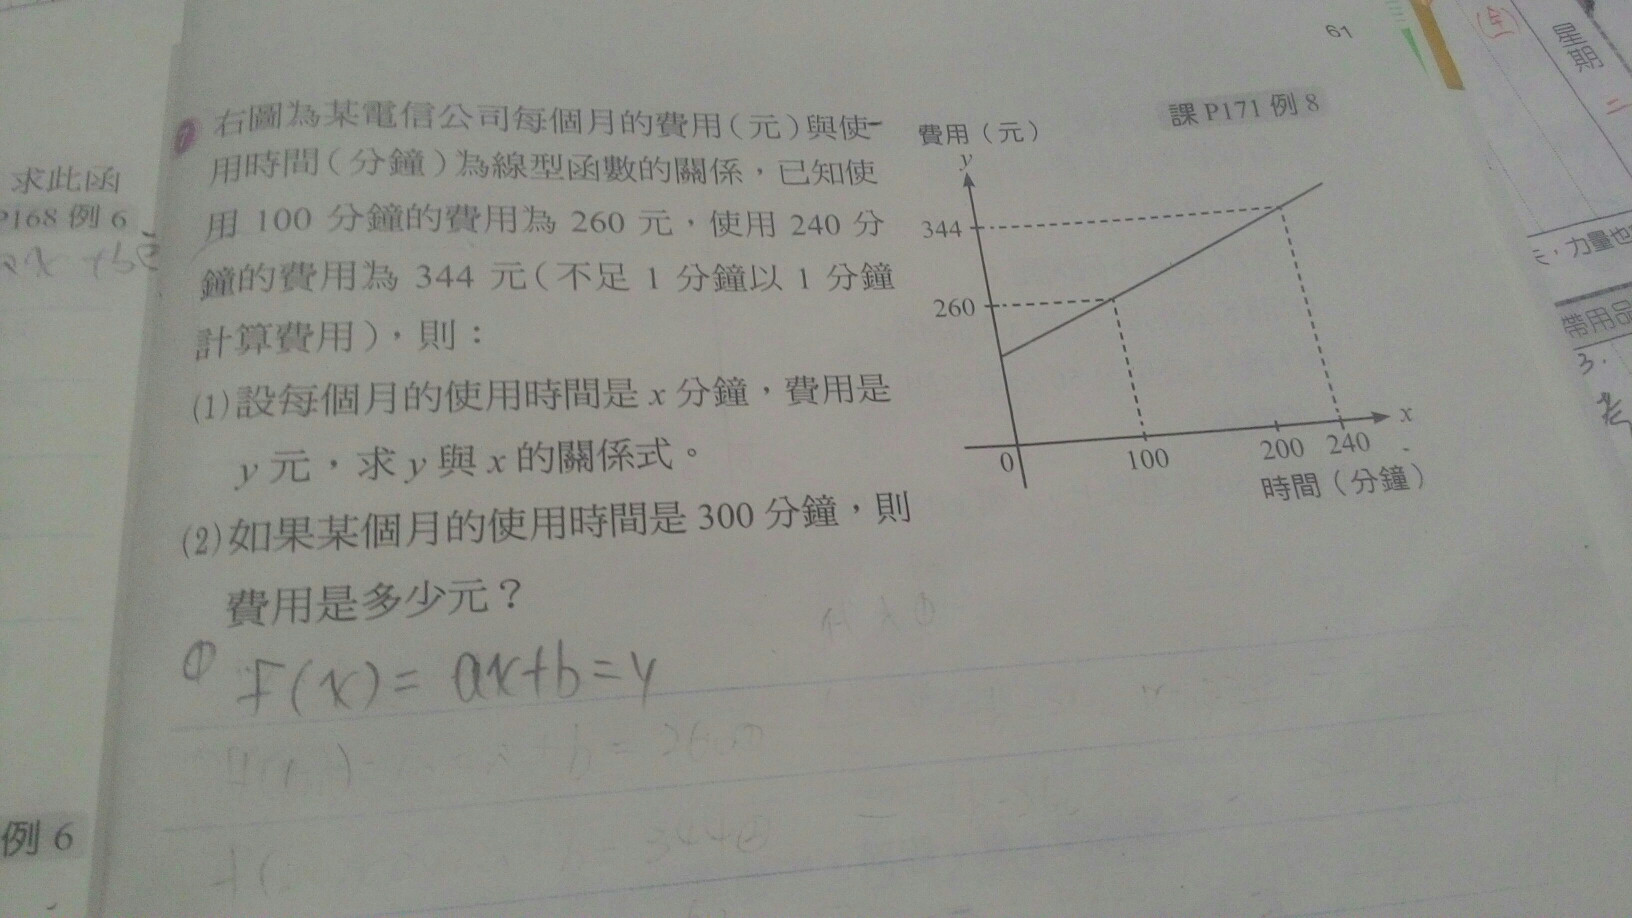 61
課 P171 例 8
右圖為某電信公司每個月的費用(元)與使
用時間(分鐘)為線型函數的關係，已知使
用 100 分鐘的費用為 260 元，使用 240 分
鐘的費用為 344 元(不足 1 分鐘以 1 分鐘
計算費用)，則：
(1)設每個月的使用時間是 x 分鐘，費用是
y 元，求 y 與 x 的關係式。
(2)如果某個月的使用時間是 300 分鐘，則
費用是多少元？
① F(x)= ax+b=y
費用(元)
y
344
260
0
100
200
240
x
時間(分鐘)
求此函
P168 例 6
例 6
星期
二
力量也
帶用品
3.